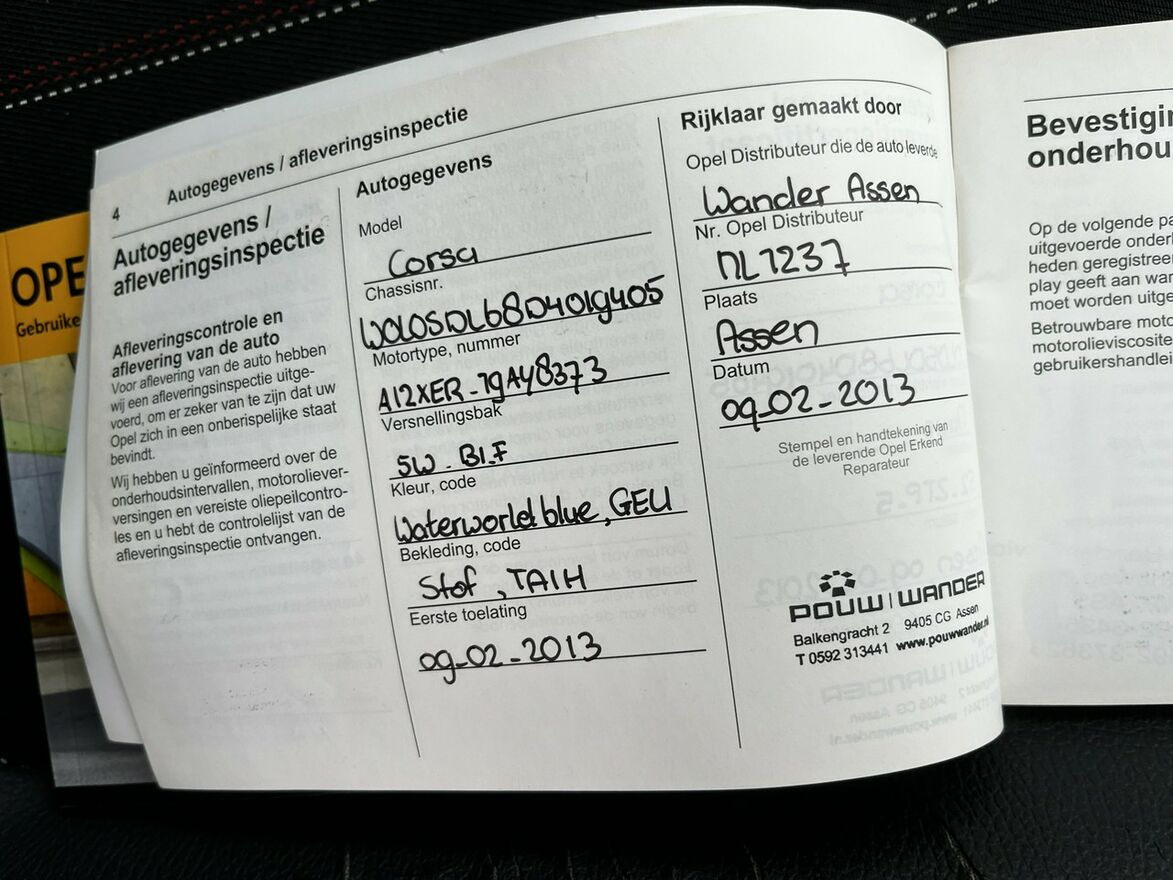 OPE
Gebruike
4 Autogegevens / afleveringsinspectie
Autogegevens /
afleveringsinspectie
Afleveringscontrole en
aflevering van de auto
Voor aflevering van de auto hebben
wij een afleveringsinspectie uitge-
voerd, om er zeker van te zijn dat uw
Opel zich in een onberispelijke staat
bevindt.
Wij hebben u geïnformeerd over de
onderhoudsintervallen, motoroliever-
versingen en vereiste oliepeilcontro-
les en u hebt de controlelijst van de
afleveringsinspectie ontvangen.
Autogegevens
Model
Corsa
Chassisnr.
W0L0SDL68D4019405
Motortype, nummer
A12XER-19AY8373
Versnellingsbak
5W. B1.F
Kleur, code
Waterworld blue, GEU
Bekleding, code
Stof, TAIH
Eerste toelating
09-02-2013
Rijklaar gemaakt door
Opel Distributeur die de auto leverde
Wander Assen
Nr. Opel Distributeur
NL7237
Plaats
Assen
Datum
09-02-2013
Stempel en handtekening van
de leverende Opel Erkend
Reparateur
POUW | WANDER
Balkengracht 2 9405 CG Assen
T 0592 313441 www.pouwwander.nl
Bevestigin
onderhou
Op de volgende pa
uitgevoerde onderh
heden geregistreer
play geeft aan wan
moet worden uitge
Betrouwbare moto
motorolieviscosite
gebruikershandlei